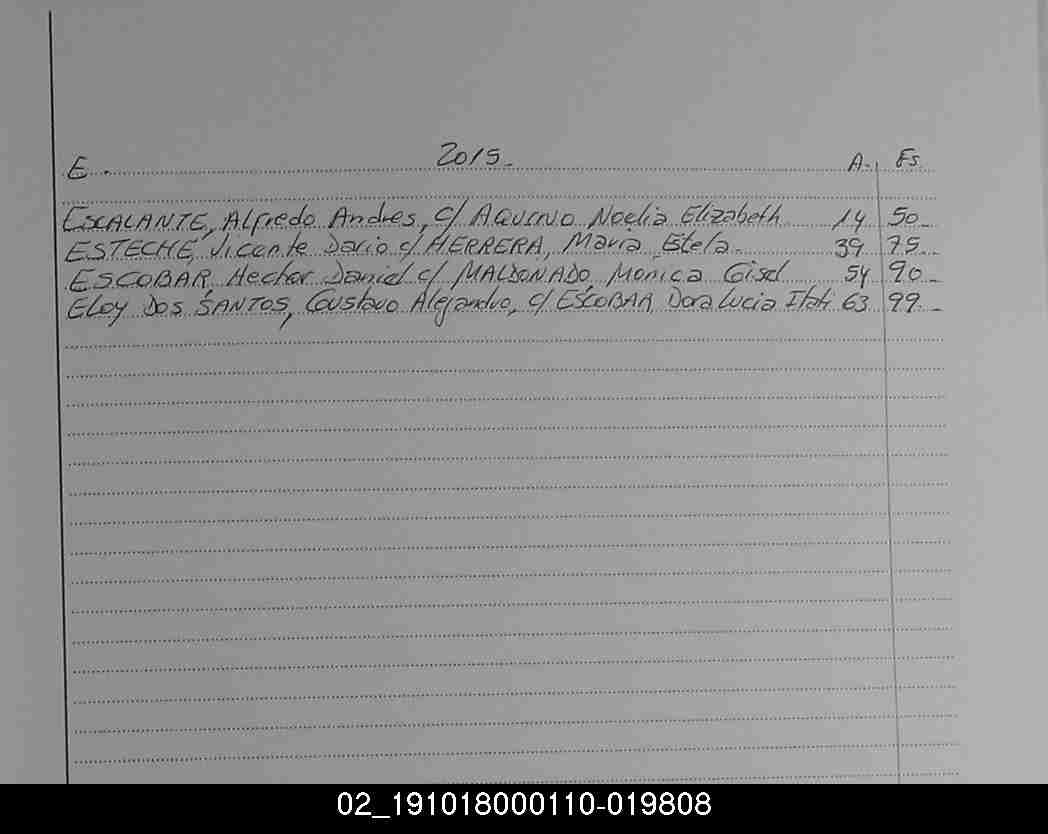 E. 2015- A. Fs.
ESCALANTE, Alfredo Andres, c/ AQUINO Noelia Elizabeth 14 50-
ESTECHE, Vicente Dario c/ HERRERA, Maria Estela 39 75-
ESCOBAR, Hector Daniel c/ MALDONADO, Monica Gisel 54 90-
ELOY DOS SANTOS, Gustavo Alejandro, c/ ESCOBAR, Dora Lucia Itati 63 99-
02_191018000110-019808